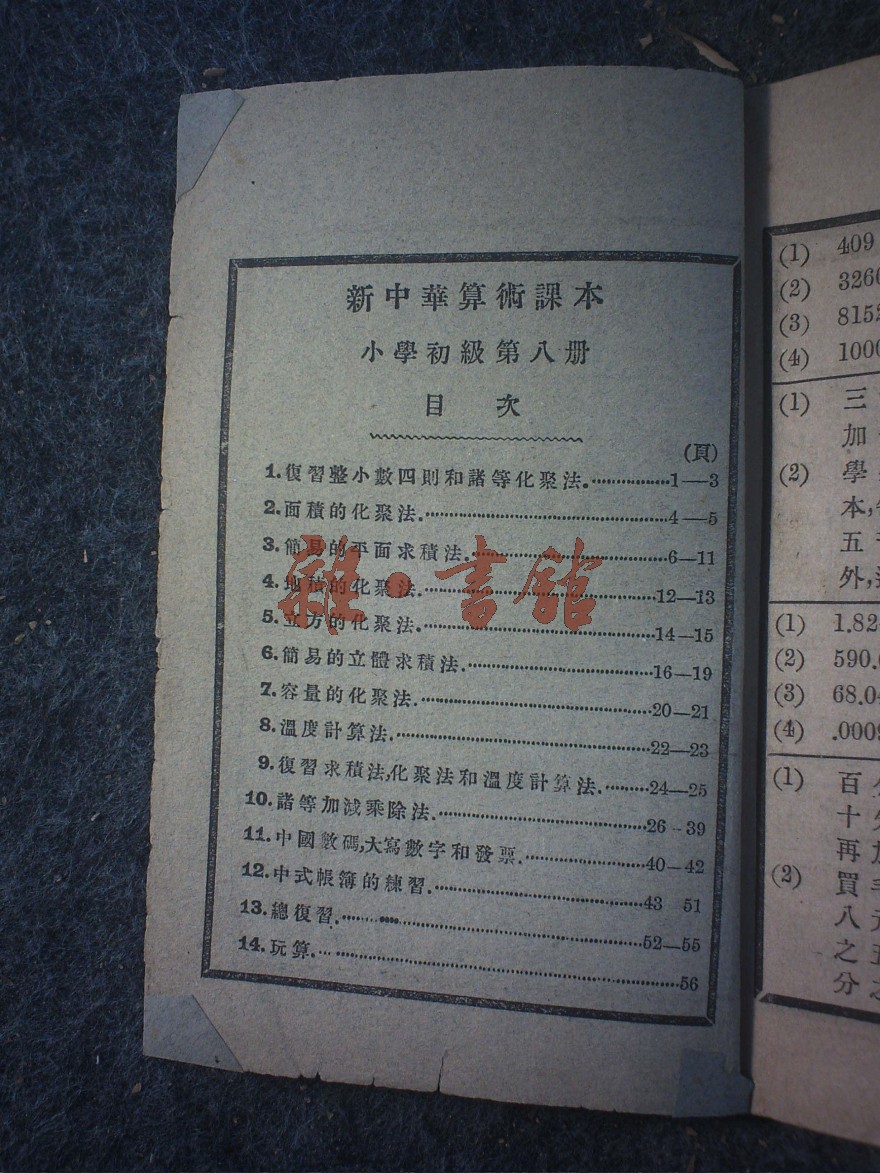 新中華算術課本
小學初級第八册
目 次
(頁)
1.復習整小數四則和諸等化聚法.················1—3
2.面積的化聚法.································4—5
3.簡易的平面求積法.····························6—11
4.地積的化聚法.································12—13
5.立方的化聚法.································14—15
6.簡易的立體求積法.····························16—19
7.容量的化聚法.································20—21
8.溫度計算法.··································22—23
9.復習求積法,化聚法和溫度計算法.·········24—25
10.諸等加減乘除法.·····························26--39
11.中國數碼,大寫數字和發票.·················40—42
12.中式帳簿的練習.·····························43 51
13.總復習.······································52—55
14.玩算.········································56
雜·書館
(1) 409
(2) 3260
(3) 8152
(4) 1000
(1) 三
加
(2) 學
本,
五
外,
(1) 1.82
(2) 590.
(3) 68.04
(4) .0009
(1) 百
十
再
(2) 買
八
之
分